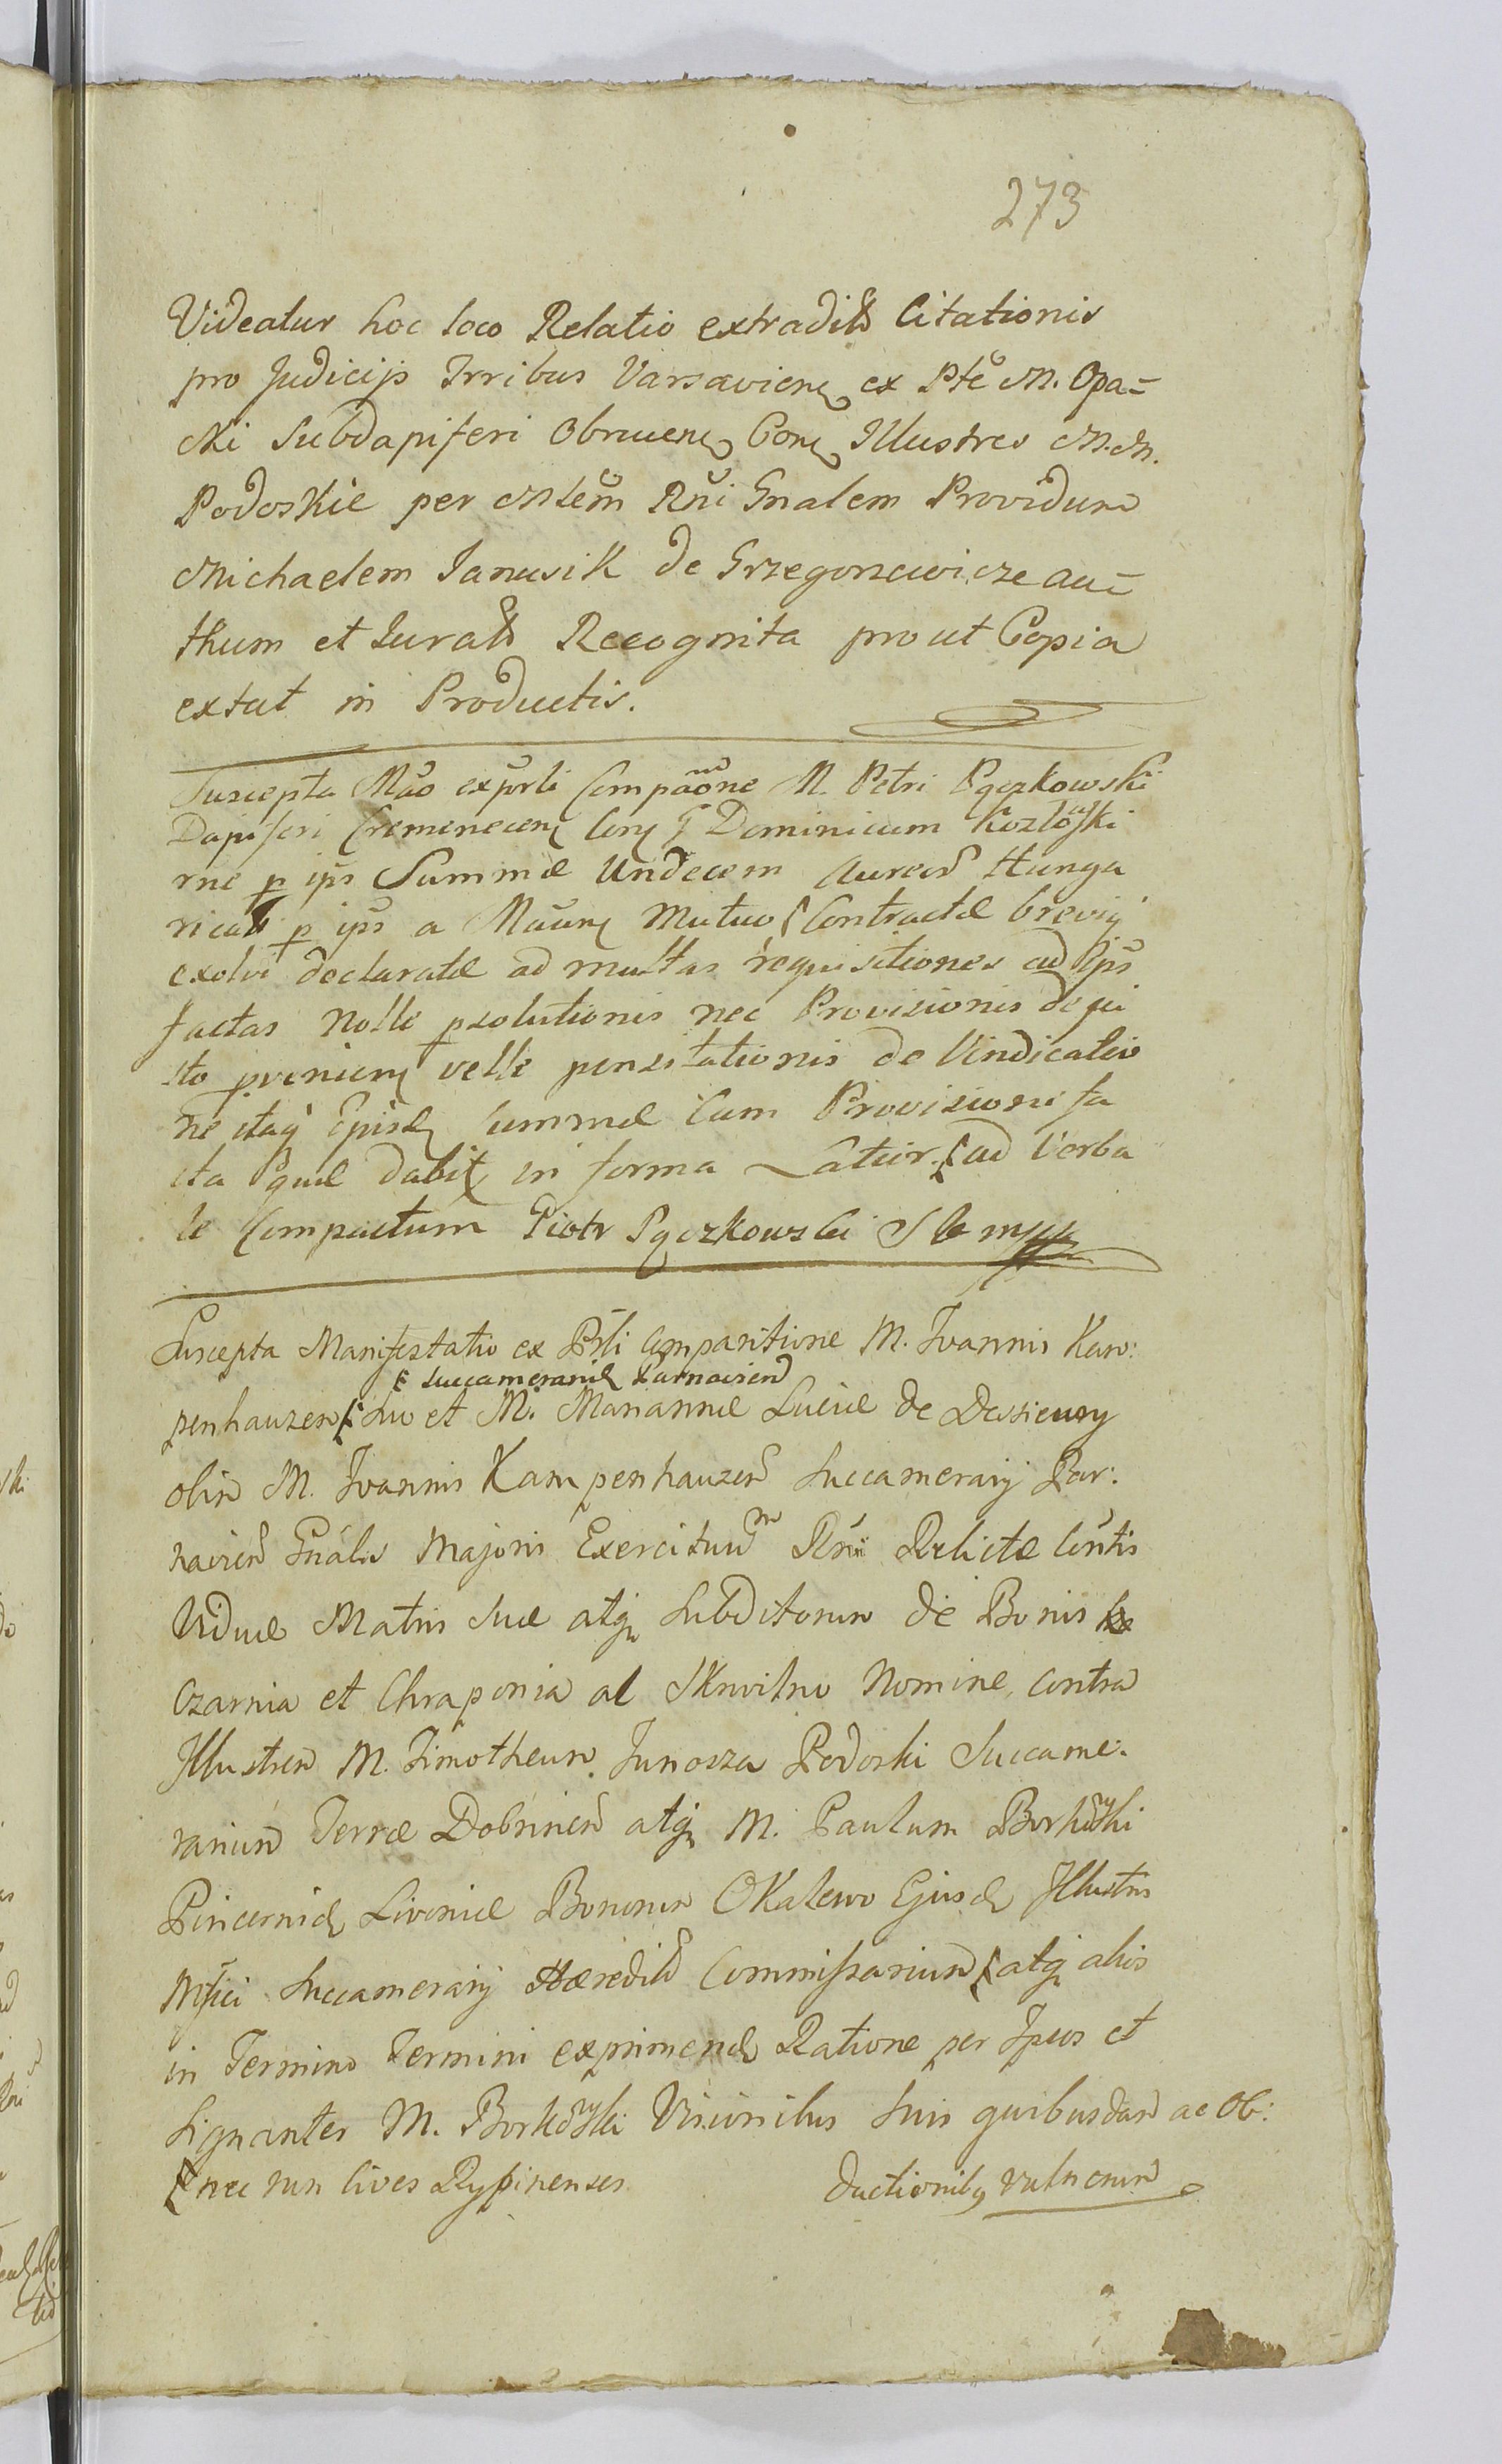 273
Videatur hoc loco Relatio extradit Citationis
pro Judicijs Trribus Varsaviens ex Pte M. Opa=
cki Subdapiferi Obruuens Con Illustres M.M.
Podoskie per Mtem Rni Gnalem Providum
Michaelem Janusik de Grzegorzewicze au=
thum et Jurat Recognita prout Copia
extat in Productis.
Suscepta Mão exprti Compaõne M. Petri Pączkowski
Dapiferi Cremenecens Con G Dominicum Kozlowski
rne p ips Summæ Undecem Aureor Hunga
rical p ips a Maun Mutuo Contractæ brevij
exolvi declaratæ ad multas requisitiones ad Ips
factas Nolle psolutionis nec Provisionis de ju
sto prenien velle pensitationis de Vindicatio
ne itaq summæ Cum Provisione fa
cta quæ dabit in forma Latior ad Verba
le Compactum Piotr Pączkowski S K mpp
Suscepta Manifestatio ex Prti Comparitione M. Joannis Kam:
Succamerarid Parnavien
penhauzen Suo et M. Mariannæ Luciæ de Dessieury
olim M. Joannis Kampenhauzen Succamerarij Par:
navien Gnalis Majoris Exercituum Rni Relictæ Contis
Viduæ Matris Suæ atq Subditorum de Bonis
Czarnia et Chraponia al Skrwitno Nomine, contra
Illustrem M. Timotheum Junosza Podoski Succame:
rarium Terræ Dobrinen atq M. Paulum Borkowski
Pincernid Livoniæ Bonorum Okalewo Ejusd Illustris
Mfici Succamerarij Hæredit Commissarium atq alios
in Termino Termini exprimend Ratione per Ipsos et
Signanter M. Borkowski Visionibus Suis quibusdam ac Ob:
nec non Cives Rypinenses
ductionibq vulnerum